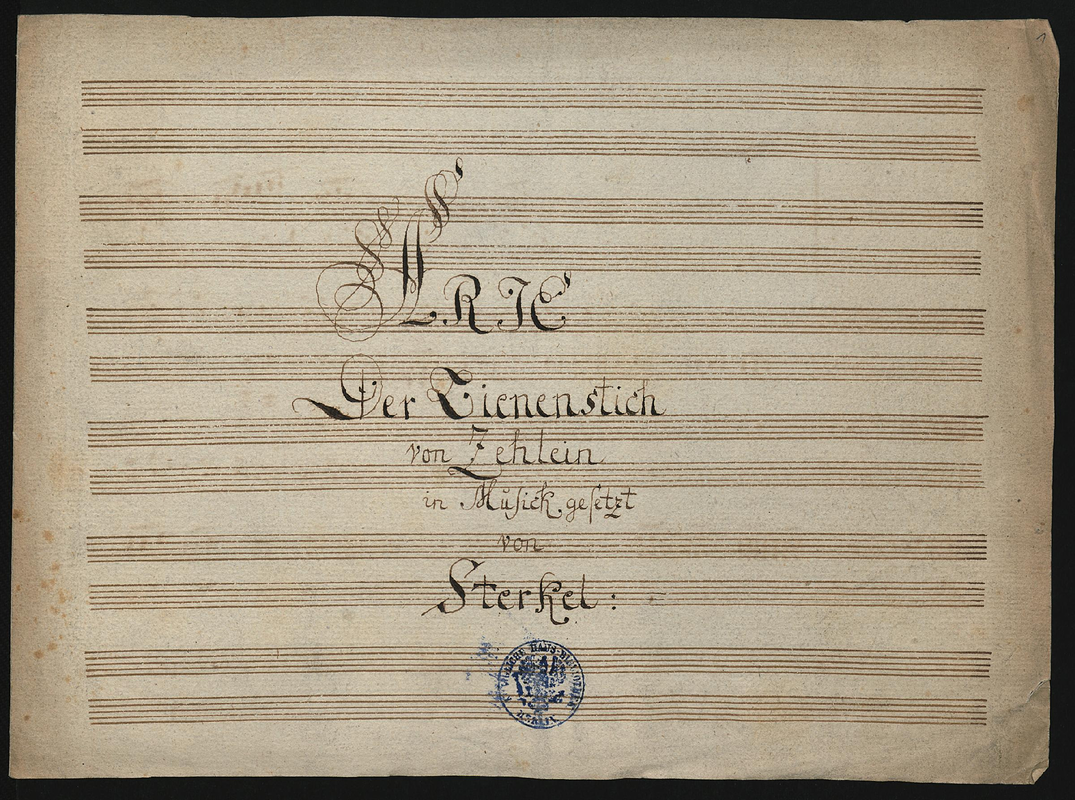 1
ARIE
Der Bienenstich
von Zehlein
in Musick gesetzt
von
Sterkel:
KÖNIGLICHE HAUS-BIBLIOTHEK
BERLIN